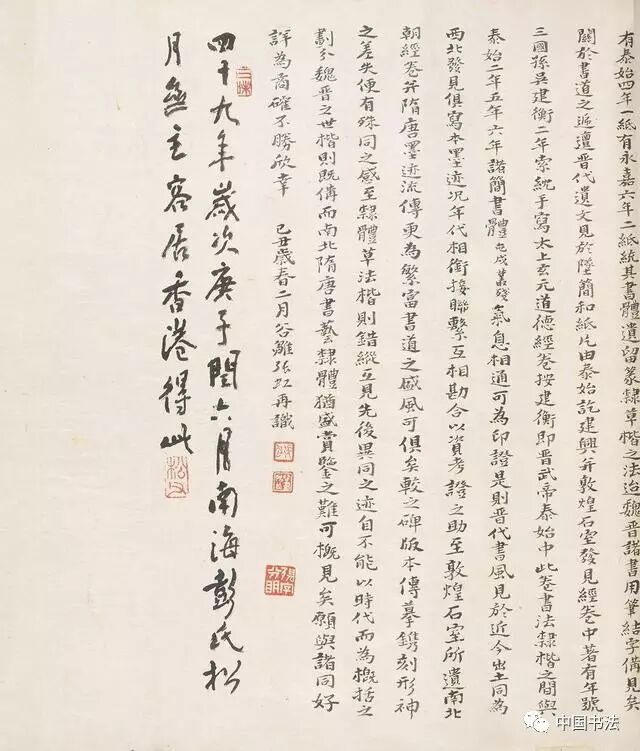 有泰始四年一紙有永嘉六年二紙統其書體遺留篆隸草楷之法迨魏晉諸書用筆結字備見矣
關於書道之遞遭晉代遺文見於墜簡和紙片由泰始訖建興并敦煌石室發見經卷中著有年號
三國孫吳建衡二年索紞手寫太上玄元道德經卷按建衡即晉武帝泰始中此卷書法隸楷之間與
泰始二年五年六年諸簡書體屯戍叢殘氣息相通可為印證是則晉代書風見於近今出土同為
西北發見俱寫本墨迹況年代相銜接聯繫互相勘合以資考證之助至敦煌石室所遺南北
朝經卷并隋唐墨迹流傳更為繁富書道之盛風可俱矣較之碑版本傳摹鐫刻形神
之差失便有殊同之感至隸體草法楷則錯縱互見先後異同之迹自不能以時代而為概括之
劃分魏晉之世楷則既備而南北隋唐書藝隸體猶盛賞鑒之難可概見矣願與諸同好
詳為商確不勝欣幸
己丑歲春二月谷雛張虹再識
四十九年歲次庚子閏六月南海彭氏松
月盦主客居香港得此
中国书法